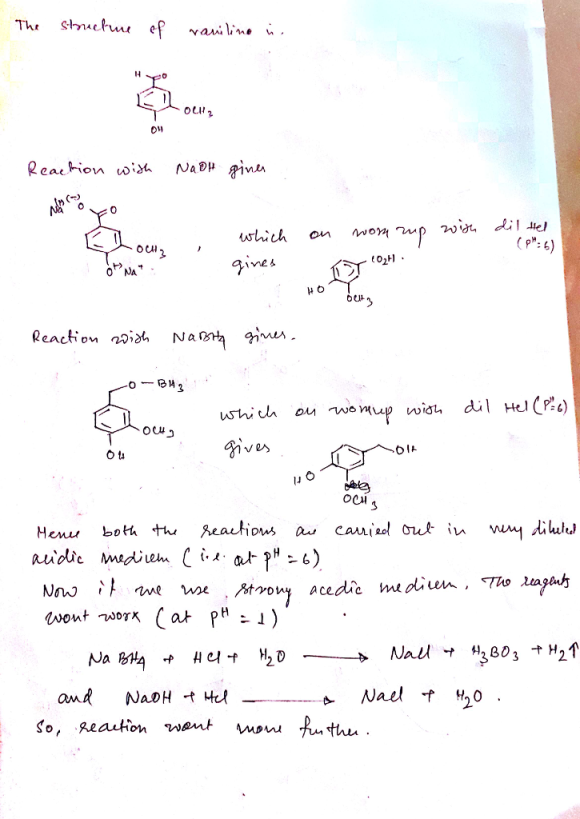 The structure of vaniline is.
H O
OCH3
OH
Reaction with NaOH gives
Na (-) O O
OCH3
O(-) Na+ .
, which on work up with dil HCl (pH=6)
gives
CO2H .
HO
OCH3
Reaction with NaBH4 gives.
O — BH3
OCH3
OH
which on workup with dil HCl (pH=6)
gives
OH
HO
OCH3
Hence both the reactions are carried out in very diluted
acidic medicem (i.e. at pH = 6)
Now if we use strong acedic medicem. The reagents
wont work (at pH = 1)
NaBH4 + HCl + H2O ⟶ NaCl + H3BO3 + H2↑
and NaOH + HCl ⟶ NaCl + H2O .
So, reaction want move further.